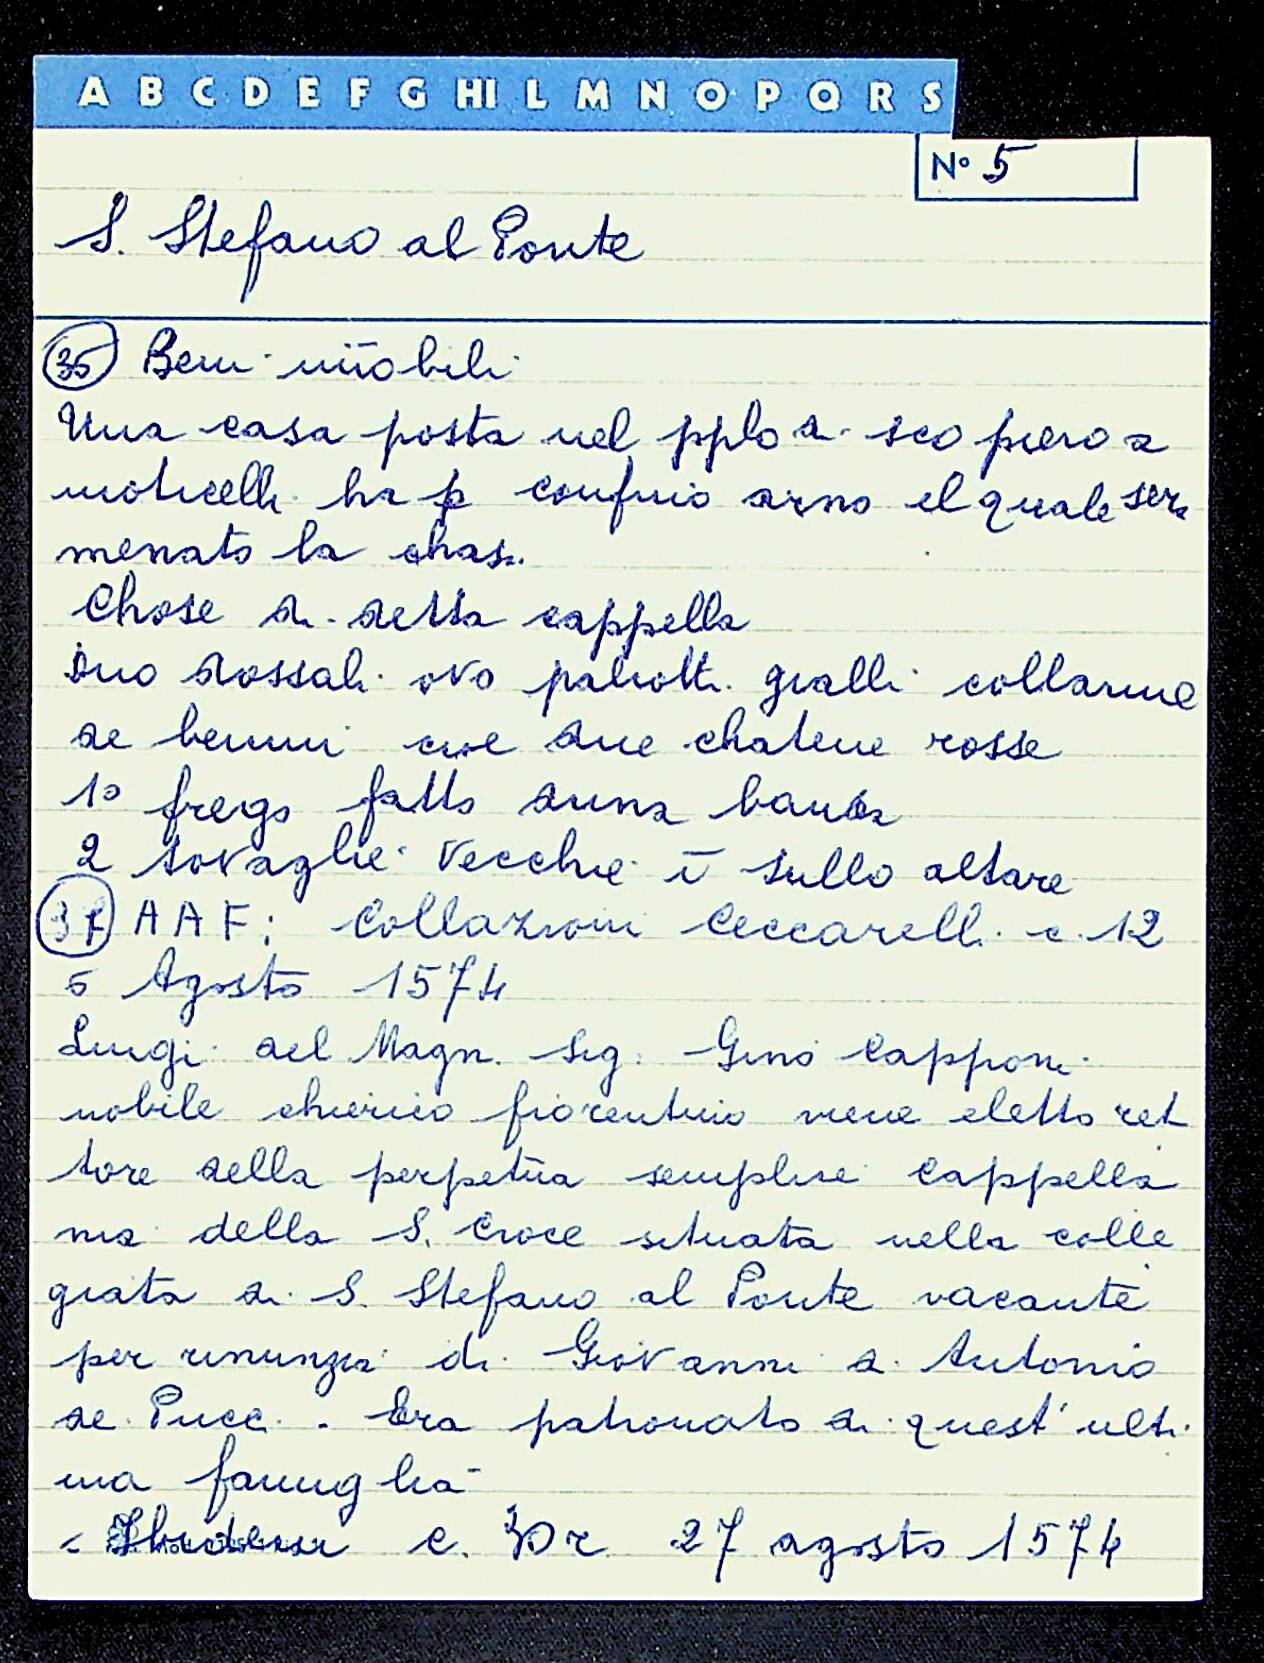 A B C D E F G HI L M N O P Q R S
N° 5
S. Stefano al Ponte
35 Beni īmobili
Una casa posta nel pplo di sco piero a
moticelli ha p confino arno el quale sen
menato la chasa
Chose di detta cappella
Duo dossali ovo paliotti gialli collarme
de benini cioe due chatene rosse
1o fregio fatto duna banda
2 tovaglie vecchie ī sullo altare
37 AAF: Collazioni Ceccarelli c. 12
5 Agosto 1574
Luigi del Magn. Sig. Gino Capponi
nobile chierico fiorentino viene eletto ret
tore della perpetua semplice Cappella
nia della S. Croce situata nella colle
giata di S. Stefano al Ponte vacante
per rinunzia di Giovanni d. Antonio
de Pucci. Era patronato di quest'ulti
ma famiglia
Ibidem c. 30 r 27 agosto 1574